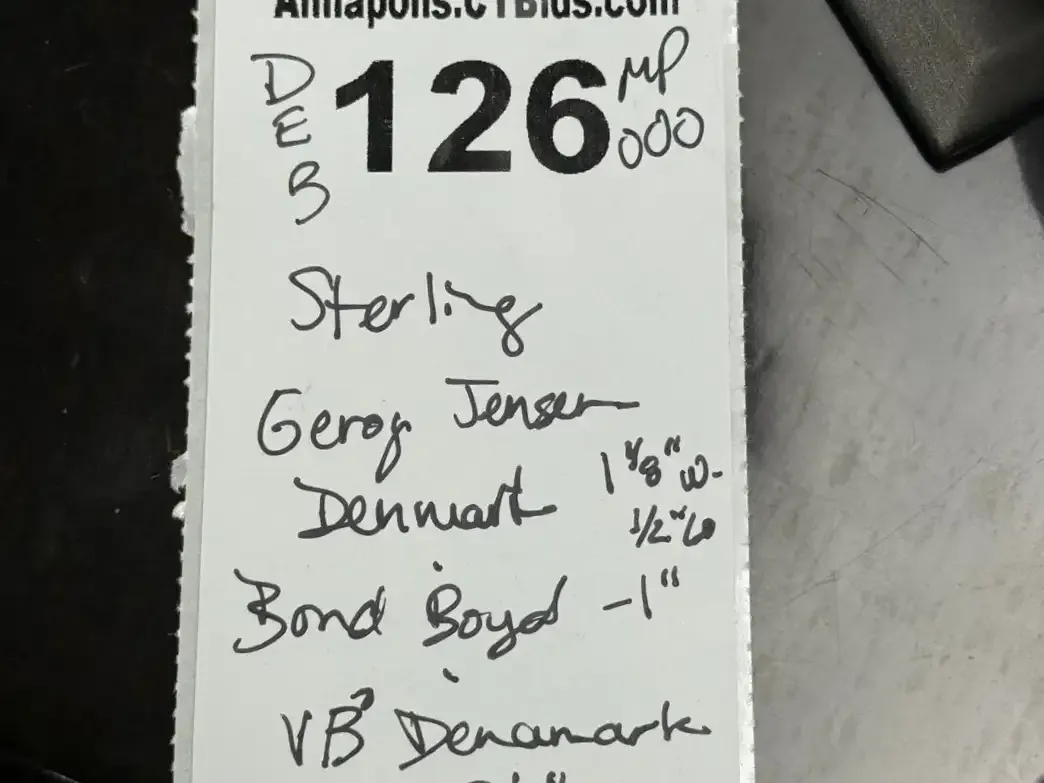 Annapolis.CTBids.com
DEB 126 MP
000
Sterling
Gerog Jensen
Denmark 1 1/8" W-
1/2"
Bond Boyd -1"
VB Denamark